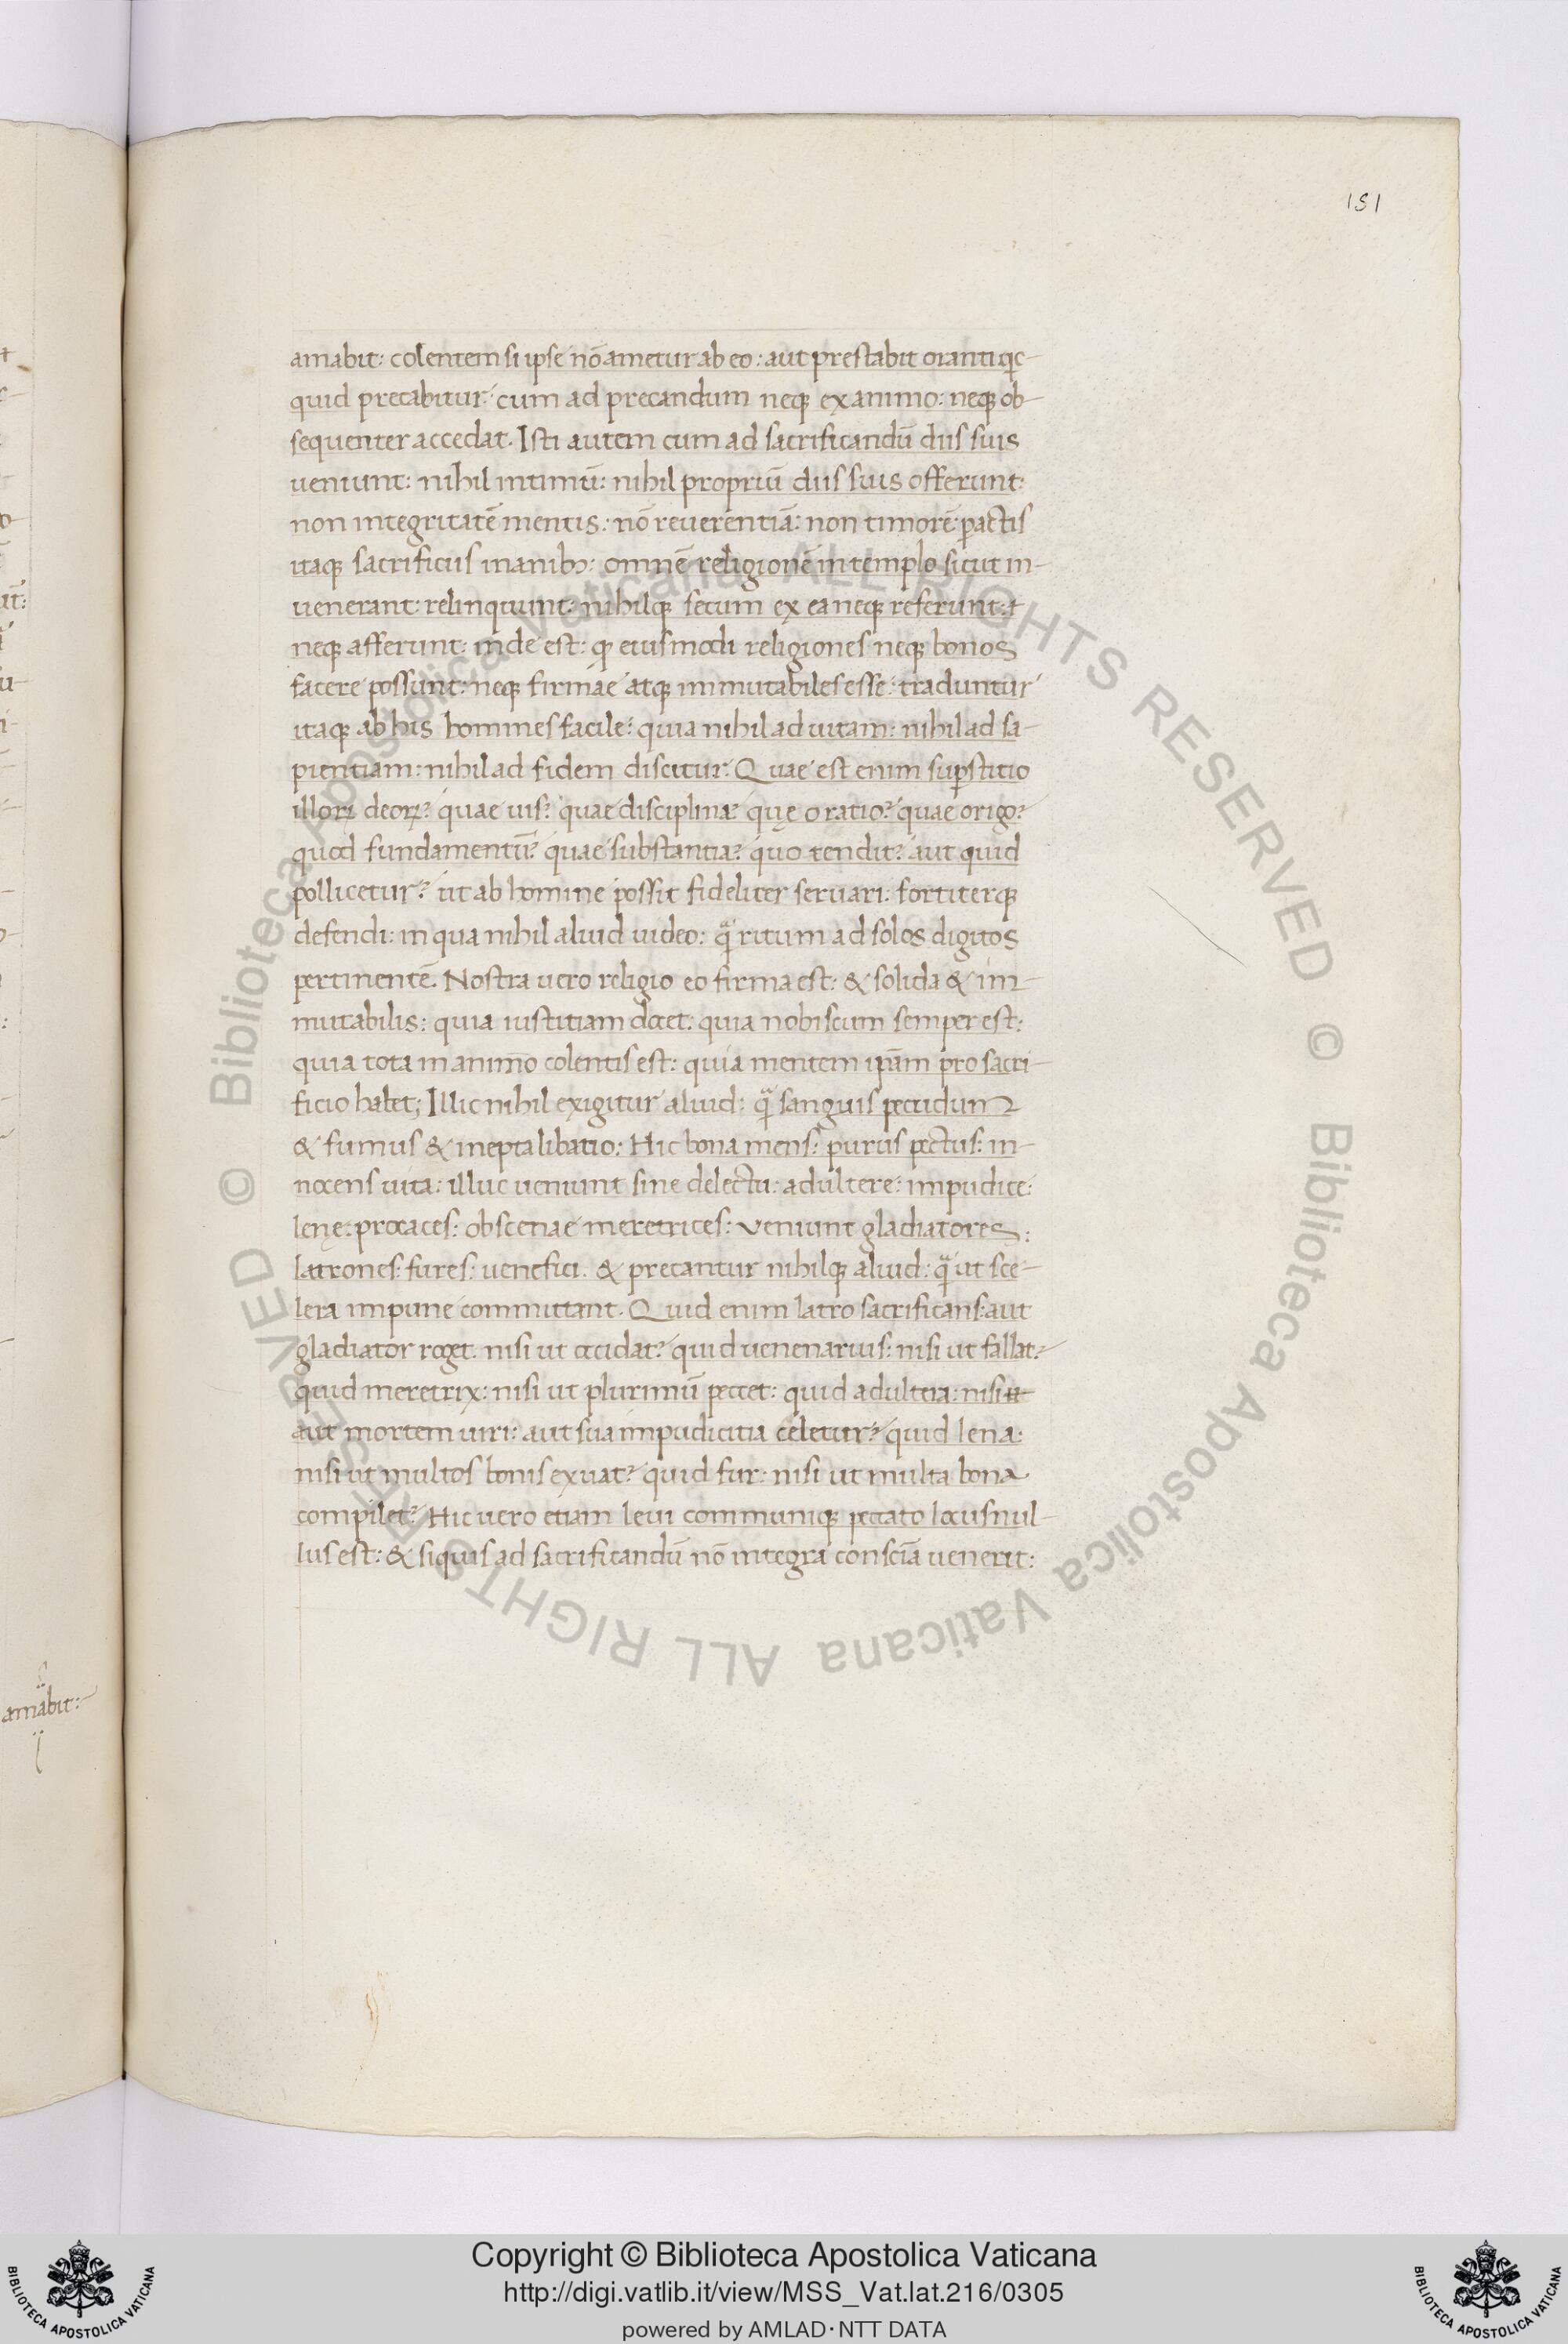 151
amabit: colentem si ipse nō ametur ab eo: aut prestabit oranti qc-
quid precabitur: cum ad precandum neqꝫ ex animo: neqꝫ ob-
sequenter accedat. Isti autem cum ad sacrificandū diis suis
ueniunt: nihil intimū: nihil propriū diis suis offerunt:
non integritatē mentis: nō reuerentiā: non timorē: ꝑactis
itaqꝫ sacrificiis inanibꝫ: omnē religionē in templo sicut in-
uenerant: relinquunt: nihilqꝫ secum ex ea neqꝫ referunt:
neqꝫ afferunt: inde est: ꝙ eiusmodi religiones neqꝫ bonos
facere possunt: neqꝫ firmae atqꝫ immutabiles esse: traduntur
itaqꝫ ab his homines facile: quia nihil ad uitam: nihil ad sa-
pientiam: nihil ad fidem discitur. Quae est enim suꝑstitio
illoꝝ deoꝝ? quae uis? quae disciplina? quę oratio? quae origo?
quod fundamentū? quae substantia? quo tendit? aut quid
pollicetur? ut ab homine possit fideliter seruari: fortiterqꝫ
defendi: in qua nihil aliud uideo: q̈ ritum ad solos digitos
pertinentē. Nostra uero religio eo firma est: & solida & im-
mutabilis: quia iustitiam docet: quia nobiscum semper est:
quia tota in animo colentis est: quia mentem ip̄am pro sacri-
ficio habet; Illic nihil exigitur aliud: q̈ sanguis pecudum
& fumus & inepta libatio: Hic bona mens: purus pectus: in-
nocens uita: illuc ueniunt sine delectu: adultere: impudice:
lenę: procaces: obscenae meretrices: Veniunt gladiatores:
latrones: fures: uenefici. & precantur nihilqꝫ aliud: q̈ ut sce-
lera impune committant. Quid enim latro sacrificans: aut
gladiator roget. nisi ut occidat? quid uenenarius: nisi ut fallat?
quid meretrix: nisi ut plurimū peccet: quid adultera: nisi ut
aut mortem uiri: aut sua impudicitia celetur? quid lena:
nisi ut multos bonis exuat? quid fur: nisi ut multa bona
compilet? Hic uero etiam leui communiqꝫ peccato locus nul-
lus est: & siquis ad sacrificandū nō integra conscīa uenerit:
amabit:
© Biblioteca Apostolica Vaticana ALL RIGHTS RESERVED
© Biblioteca Apostolica Vaticana ALL RIGHTS RESERVED
Copyright © Biblioteca Apostolica Vaticana
http://digi.vatlib.it/view/MSS_Vat.lat.216/0305
powered by AMLAD·NTT DATA
BIBLIOTECA APOSTOLICA VATICANA
BIBLIOTECA APOSTOLICA VATICANA